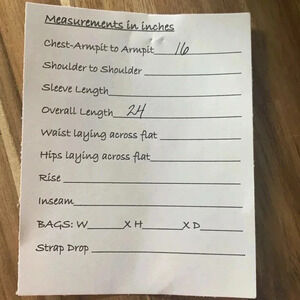 Measurements in inches
Chest-Armpit to Armpit 16
Shoulder to Shoulder
Sleeve Length
Overall Length 24
Waist laying across flat
Hips laying across flat
Rise
Inseam
BAGS: W______X H______X D______
Strap Drop